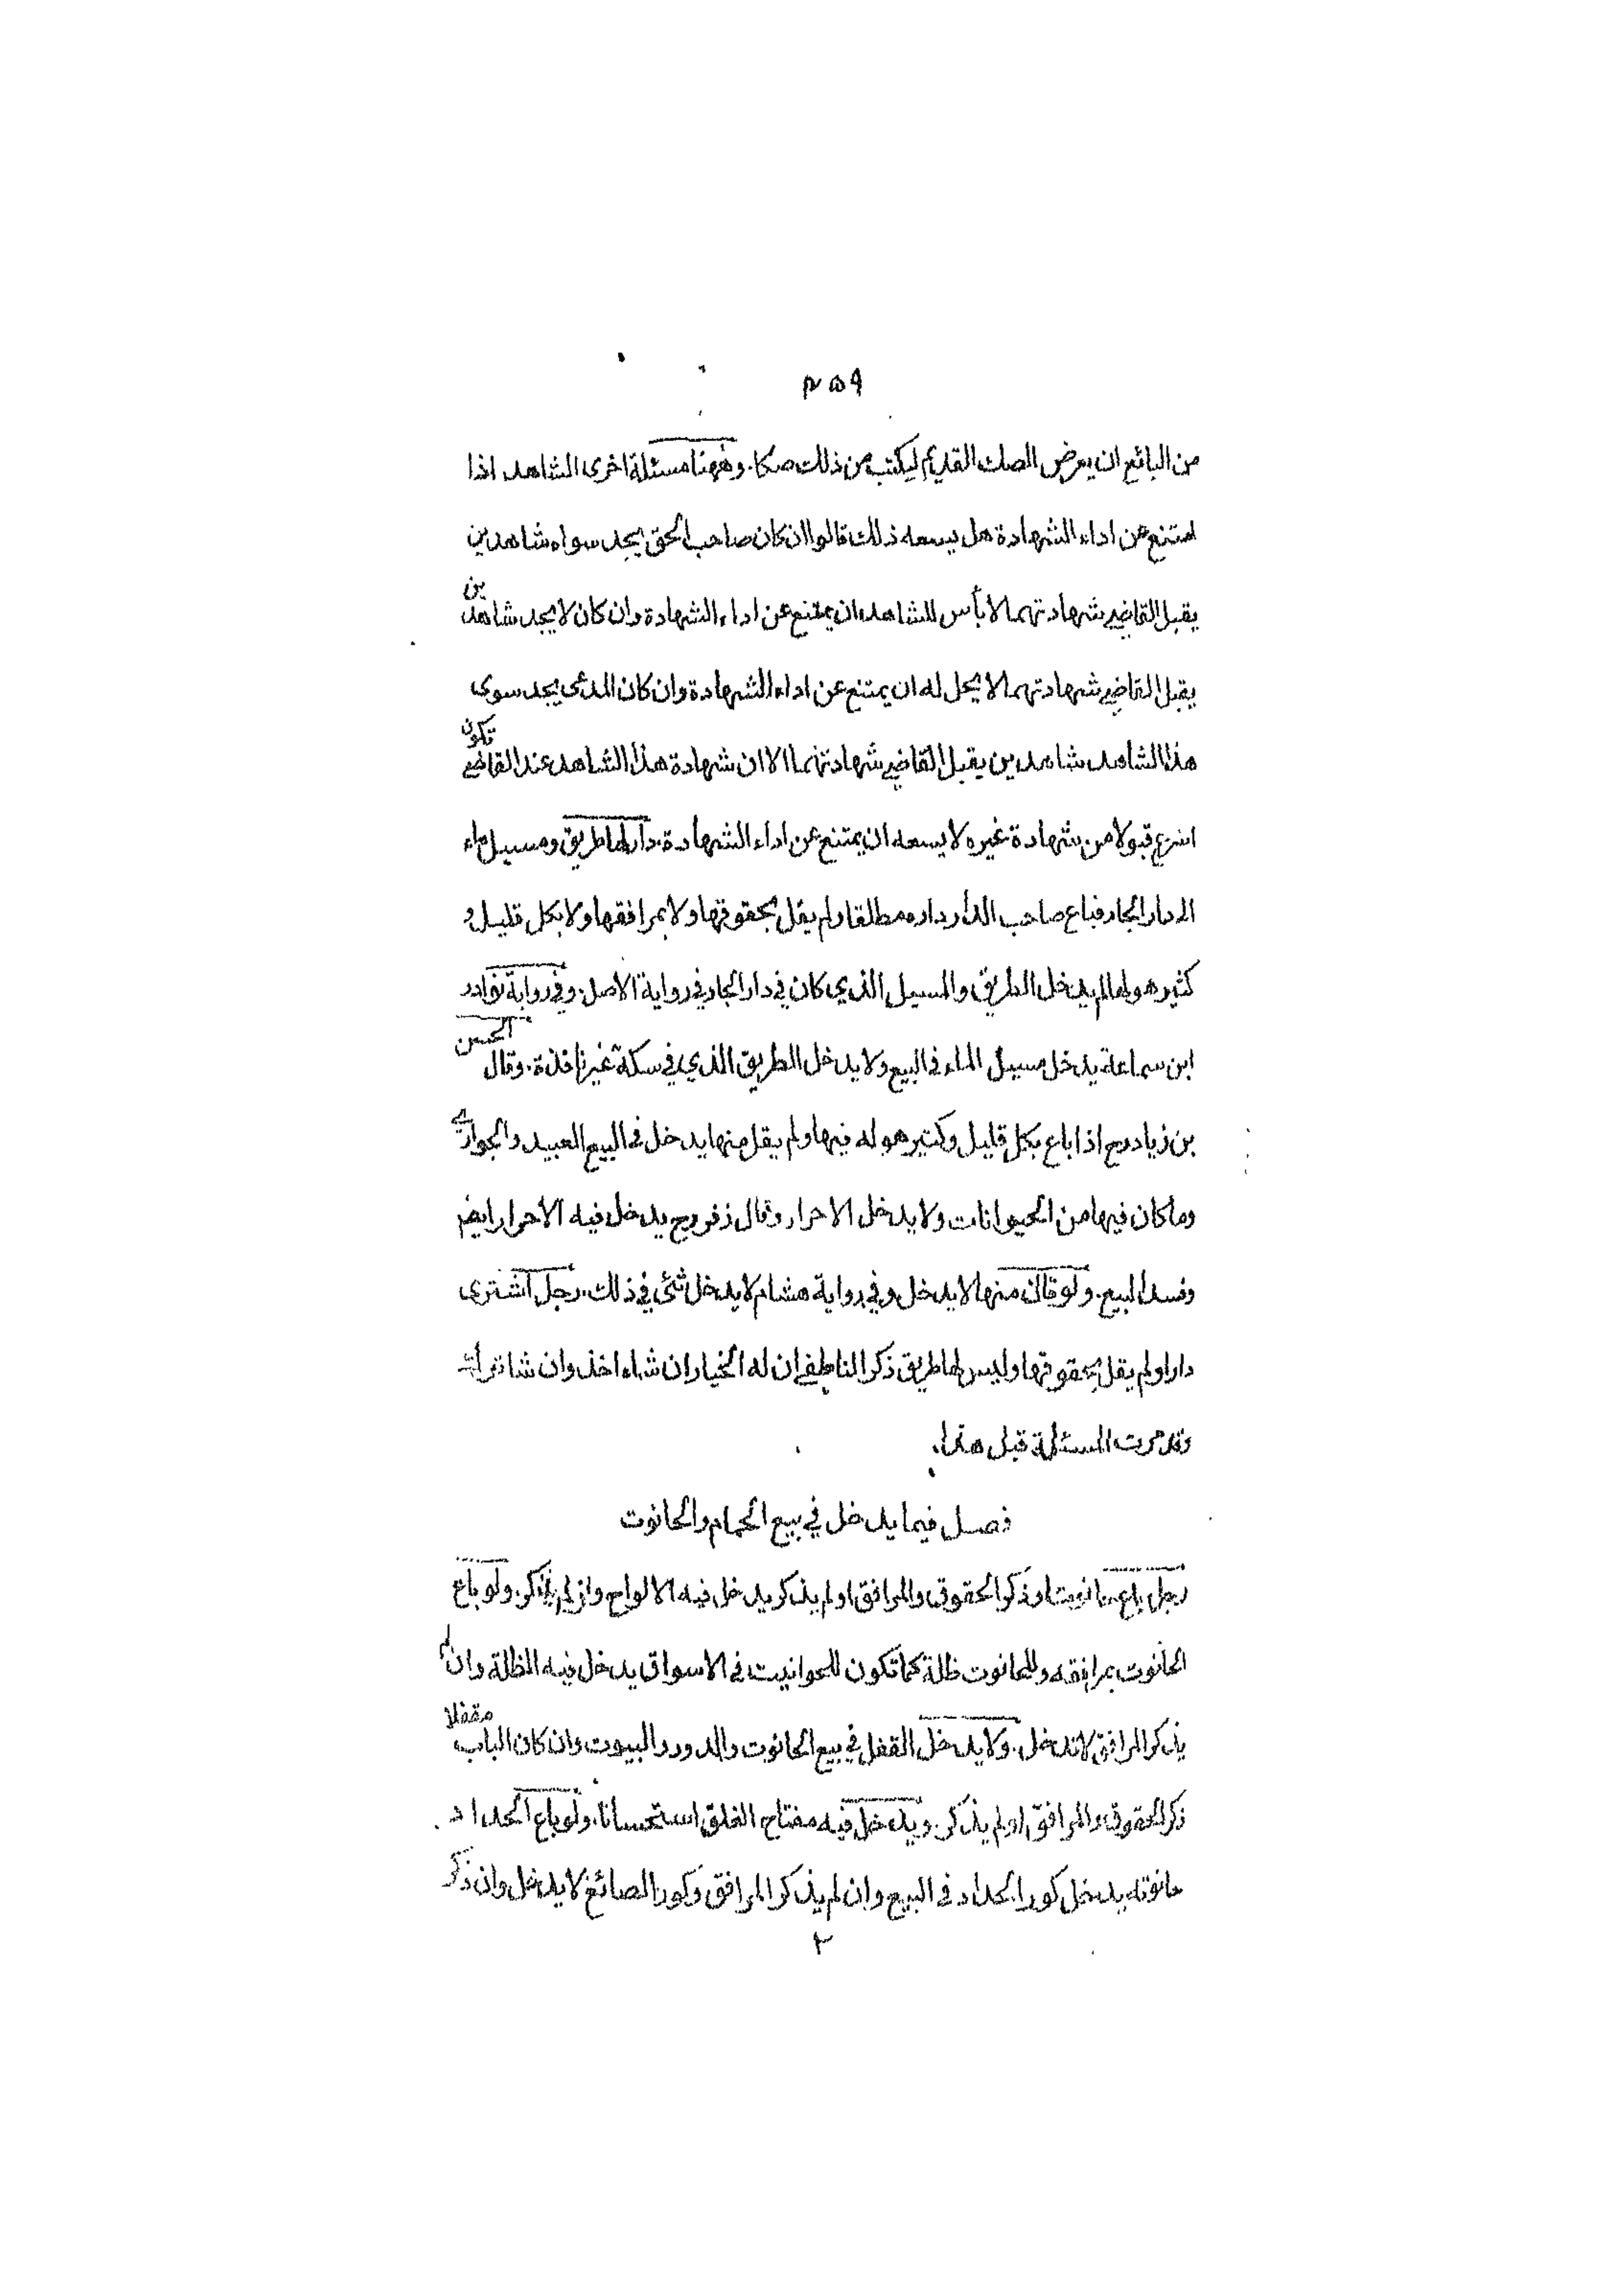 ٢٥٩
من البائع ان يعرض الصك القديم ليكتب من ذلك صكا. وههنا مسئلة اخرى الشاهد اذا
امتنع عن اداء الشهادة هل يسعه ذلك قالوا ان كان صاحب الحق يجد سواه شاهدين
يقبل القاضي شهادتهما لا بأس للشاهد ان يمتنع عن اداء الشهادة وان كان لا يجد شاهدين
يقبل القاضي شهادتهما لا يحل له ان يمتنع عن اداء الشهادة وان كان المدعى يجد سوى
هذا الشاهد شاهدين يقبل القاضي شهادتهما الا ان شهادة هذا الشاهد عند القاضي تكون
اسرع قبولا من شهادة غيره لا يسعه ان يمتنع عن اداء الشهادة. دار لها طريق ومسيل ماء
الى دار الجار فباع صاحب الدار داره مطلقا ولم يقل بحقوقها ولا بمرافقها ولا بكل قليل و
كثير هو لها لم يدخل الطريق والمسيل الذي كان في دار الجار في رواية الاصل. وفي رواية نوادر
ابن سماعة يدخل مسيل الماء في البيع ولا يدخل الطريق الذي في سكة غير نافذة. وقال الحسن
بن زياد رح اذا باع بكل قليل وكثير هو له فيها ولم يقل منها يدخل في البيع العبيد والجواري
وما كان فيها من الحيوانات ولا يدخل الاحرار وقال زفر رح يدخل فيه الاحرار ايضم
وفسد البيع. ولو قال منها لا يدخل وفي رواية هشام لا يدخل شئ في ذلك. رجل اشترى
دارا ولم يقل بحقوقها وليس لها طريق ذكر الناطفي ان له الخيار ان شاء اخذ وان شاء ترك
وقد مرت المسئلة قبل هذا.
فصل فيما يدخل في بيع الحمام والحانوت
رجل باع حانوتا وذكر الحقوق والمرافق او لم يذكر يدخل فيه الالواح وان لم يذكر. ولو باع
الحانوت بمرافقه وللحانوت ظلة كما تكون للحوانيت في الاسواق يدخل فيه الظلة وان لم
يذكر المرافق لا تدخل. ولا يدخل القفل في بيع الحانوت والدور والبيوت وان كان الباب مقفلا
ذكر الحقوق والمرافق او لم يذكر. ويدخل فيه مفتاح الغلق استحسانا. ولو باع الحداد
حانوته يدخل كور الحداد في البيع وان لم يذكر المرافق وكور الصائغ لا يدخل وان ذكر
٢